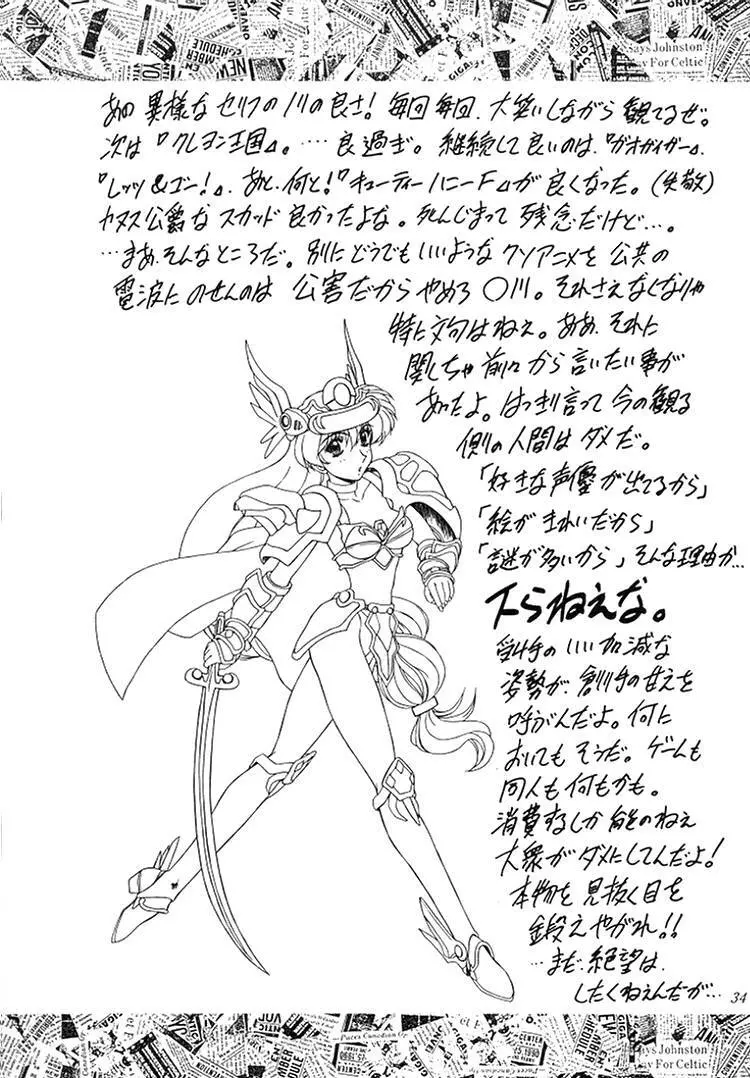 Says Johnston
y For Celtic
あの異様なセリフのノリの良さ！毎回毎回、大笑いしながら観てるぜ。
次は『クレヨン王国』。……良過ぎ。継続して良いのは、『ガオガイガー』、
『レッツ＆ゴー！』、あと、何と！『キューティーハニーF』が良くなった。(失敬)
カヌス公爵なスカッド良かったよな。死んじまって残念だけど…。
…まあ、そんなところだ。別にどうでもいいようなクソアニメを公共の
電波にのせんのは公害だからやめろ〇川。それさえなくなりゃ
特に文句はねぇ。ああ、それに
関しちゃ前々から言いたい事が
あったよ。はっきり言って今の観る
側の人間はダメだ。
「好きな声優が出てるから」
「絵がきれいだから」
「謎が多いから」そんな理由か…
下らねえな。
受け手のいい加減な
姿勢が、創り手の甘えを
呼びんだよ。何に
おいてもそうだ。ゲームも
同人も何もかも。
消費するしか能のねぇ
大衆がダメにしてんだよ！
本物を見抜く目を
鍛えやがれ！！
…まだ絶望は
したくねぇんだが…
34
ays Johnston
ay For Celtic